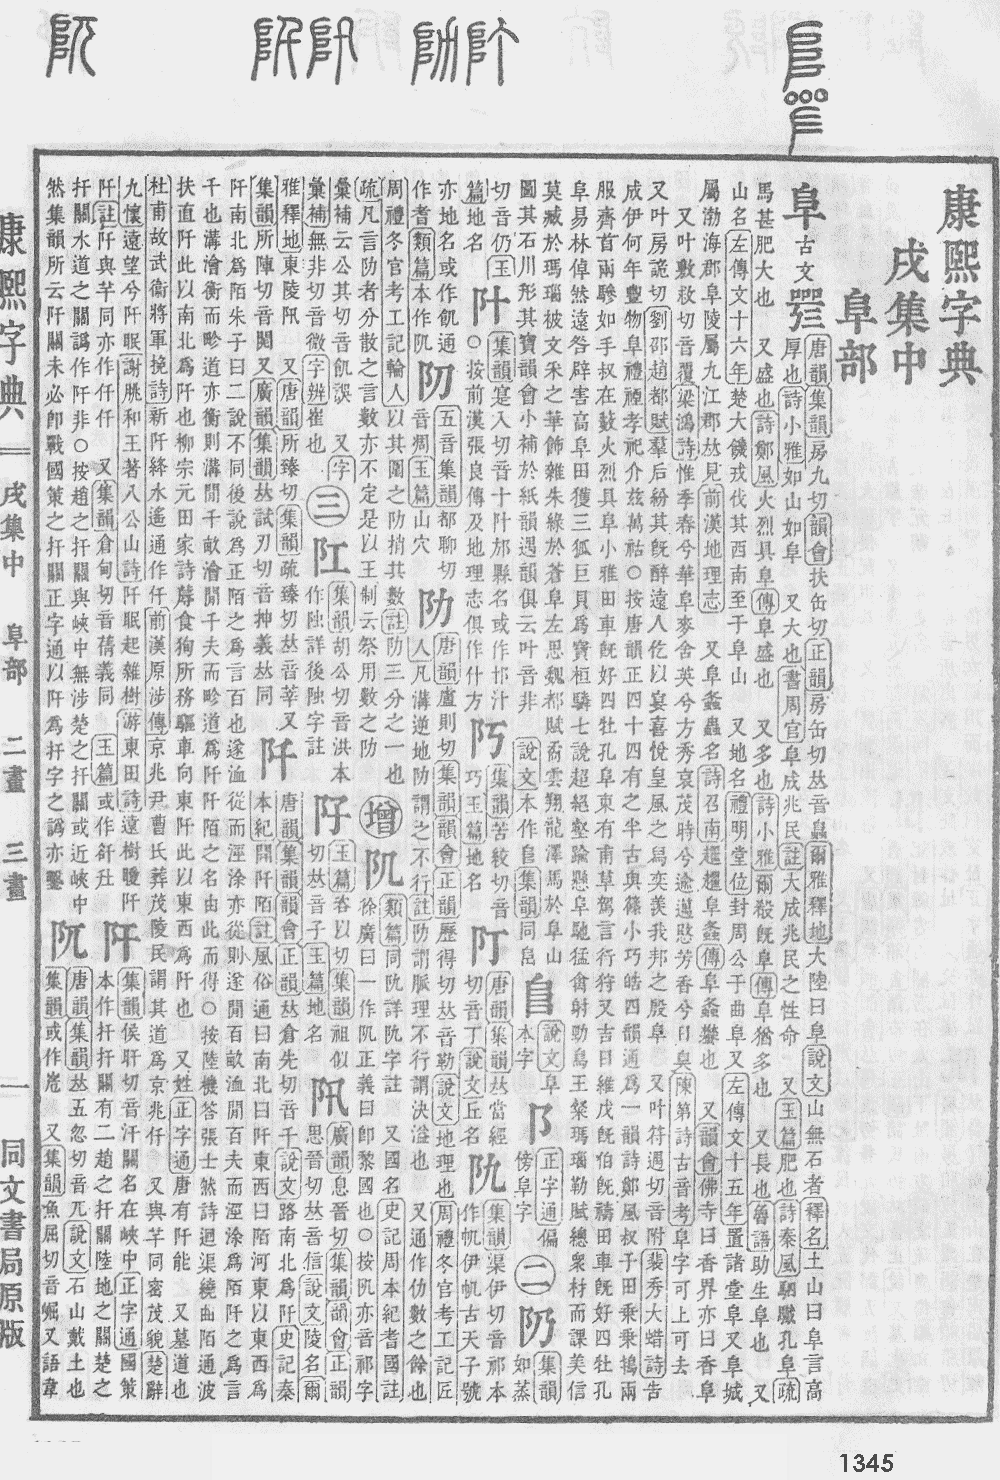 康熙字典
戌集中
阜部
阜
古文
唐韻集韻房九切韻會扶缶切正韻房缶切𠀤音
爾雅釋地大陸曰阜說文山無石者釋名土山曰阜言高
厚也詩小雅如山如阜 又大也書周官阜成兆民註大成兆民之性命 又玉篇肥也詩秦風駟驖孔阜疏
馬甚肥大也 又盛也詩鄭風火烈具阜傳阜盛也 又多也詩小雅爾殽旣阜傳阜猶多也 又長也魯語助生阜也 又
山名左傳文十六年楚大饑戎伐其西南至于阜山 又地名禮明堂位封周公于曲阜又左傳文十五年置諸堂阜又阜城
屬渤海郡阜陵屬九江郡𠀤見前漢地理志 又阜螽蟲名詩召南趯趯阜螽傳阜螽蠜也 又韻會佛寺曰香界亦曰香阜
又叶敷救切音覆梁鴻詩惟季春兮華阜麥含英兮方秀哀茂時兮逾邁愍芳香兮日臭陳第詩古音考阜字可上可去
又叶房詭切劉邵趙都賦羣后紛其旣醉遠人仡以宴喜悅皇風之舄奕羨我邦之殷阜 又叶符遇切音附裴秀大蜡詩告
成伊何年豐物阜禮禋孝祀介玆萬祜○按唐韻正四十四有之半古與篠小巧皓四韻通爲一韻詩鄭風叔于田乘乘鴇兩
服齊首兩驂如手叔在藪火烈具阜小雅田車旣好四牡孔阜東有甫草駕言行狩又吉日維戊旣伯旣禱田車旣好四牡孔
阜易林倬然遠咎辟害高阜田獲三狐巨貝爲寶桓驎七說超絕壑踰懸阜馳猛禽射勁鳥王粲瑪瑙勒賦總衆材而課美信
莫臧於瑪瑙被文采之華飾雜朱綠於蒼阜左思魏都賦矞雲翔龍澤馬於阜山
圖其石川形其寶韻會小補於紙韻遇韻俱云叶音非
說文本作𨸏集韻同𨸏
𨸏
說文阜
本字
阝
正字通偏
傍阜字
二
阞
集韻
如蒸
切音仍玉
篇地名
阩
集韻寔入切音十阩邡縣名或作邡汁
○按前漢張良傳及地理志俱作什方
阠
集韻苦絞切音
巧玉篇地名
阣
唐韻集韻𠀤當經
切音丁說文丘名
阢
集韻渠伊切音祁本
作帆伊帆古天子號
亦地名或作飢通
作耆類篇本作阢
五音集韻都聊切
音凋玉篇山穴
阞
唐韻盧則切集韻韻會正韻歷得切𠀤音勒說文地理也周禮冬官考工記匠
人凡溝逆地阞謂之不行註阞謂脈理不行謂決溢也 又通作仂數之餘也
周禮冬官考工記輪人以其圍之阞捎其藪註阞三分之一也
疏凡言阞者分散之言數亦不定是以王制云祭用數之阞
增
類篇同阢詳阢字註 又國名史記周本紀耆國註
徐廣曰一作阢正義曰卽黎國也○按阢亦音祁字
彙補云公其切音飢誤 又字
彙補無非切音微字辨崔也
三
𨸖
集韻胡公切音洪本
作䧆詳後䧆字註
玉篇咨以切集韻祖似
切𠀤音子玉篇地名
阠
廣韻息晉切集韻韻會正韻
思晉切𠀤音信說文陵名爾
雅釋地東陵阠 又唐韻所臻切集韻疏臻切𠀤音莘又
集韻所陳切音關又廣韻集韻𠀤試刃切音抻義𠀤同
阡
唐韻集韻韻會正韻𠀤倉先切音千說文路南北爲阡史記秦
本紀開阡陌註風俗通曰南北曰阡東西曰陌河東以東西爲
阡南北爲陌朱子曰二說不同後說爲正陌之爲言百也遂洫從而涇涂亦從則遂閒百畝洫閒百夫而涇涂爲陌阡之爲言
千也溝澮衡而畛道亦衡則溝閒千畝澮閒千夫而畛道爲阡阡陌之名由此而得○按陸機答張士然詩迴渠繞曲陌通波
扶直阡此以南北爲阡也柳宗元田家詩蓐食狥所務驅車向東阡此以東西爲阡也 又姓正字通唐有阡能 又墓道也
杜甫故武衞將軍挽詩新阡絳水遙通作仟前漢原涉傳京兆尹曹氏葬茂陵民謂其道爲京兆仟 又與芊同密茂貌楚辭
九懷遠望兮阡眠謝脁和王著八公山詩阡眠起雜樹游東田詩遠樹曖阡
阡註阡與芊同亦作仟仟 又集韻倉甸切音蒨義同
玉篇或作釬㘰
𨸜
集韻侯旰切音汗關名在峽中正字通國策
本作扞扞關有二趙之扞關陸地之關楚之
扞關水道之關譌作阡非○按趙之扞關與峽中無涉楚之扞關或近峽中
然集韻所云阡關未必卽戰國策之扞關正字通以阡爲扞字之譌亦鑿
阢
唐韻集韻𠀤五忽切音兀說文石山戴土也
集韻或作𡵉 又集韻魚屈切音崛又語韋
康熙字典
戌集中 阜部 二畫 三畫
一
同文書局原版
1345